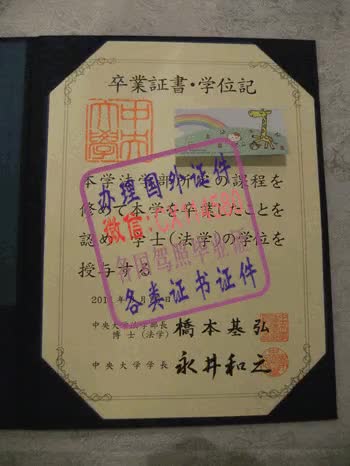 卒業証書・学位記
中央大学
本学法学部所定の課程を
修めて本学を卒業したことを
認め 学士(法学)の学位を
授与する
办理国外证件
微信:
各国驾照毕业证
各类证书证件
中央大学法学部長
博士(法学)
橋本基弘
中央大学学長
永井和之